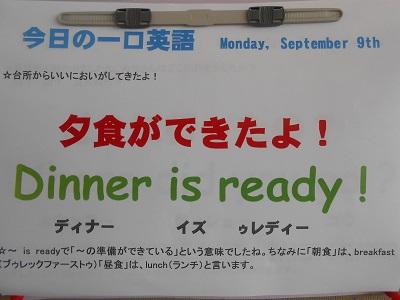 今日の一口英語 Monday, September 9th
☆台所からいいにおいがしてきたよ！
夕食ができたよ！
Dinner is ready！
ディナー イズ ゥレディー
☆～ is readyで「～の準備ができている」という意味でしたね。ちなみに「朝食」は、breakfast
(ブゥレックファーストゥ)「昼食」は、lunch(ランチ)と言います。